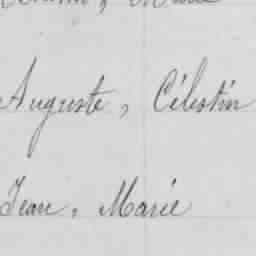 Auguste, Célestin
Jean, Marie